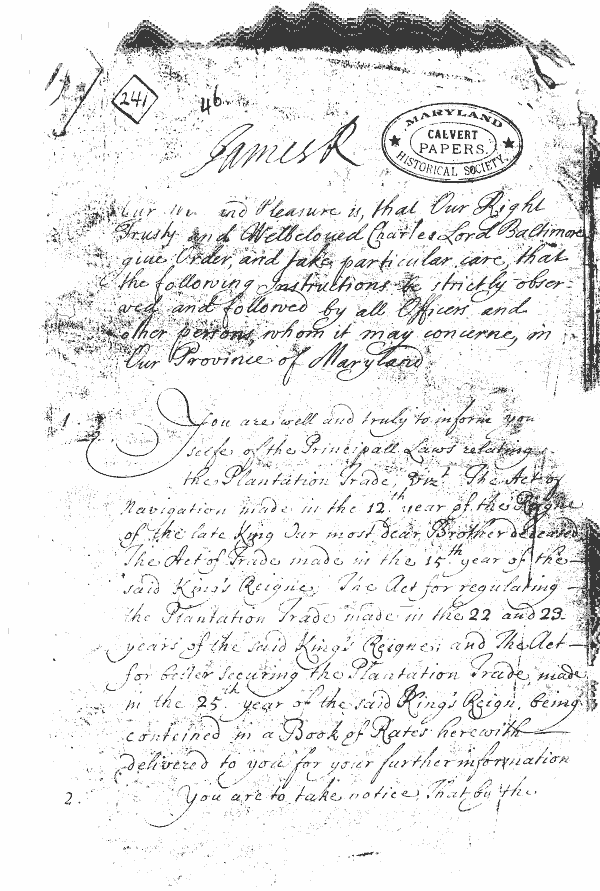 241
46
James R
MARYLAND
CALVERT
PAPERS.
HISTORICAL SOCIETY.
Our and Pleasure is, that Our Right
Trusty and Welbeloved Charles Lord Baltimore
give Order, and take particular care, that
the following Instructions be strictly obser-
ved and followed by all Officers and
other persons, whom it may concerne, in
Our Province of Maryland
1. You are well and truly to inform you
selfe of the Principall Laws relating
the Plantation Trade, Vizt. The Act of
Navigation made in the 12.th year of the Reigne
of the late King Our most dear Brother deceased
The Act of Trade made in the 15th year of the
said King's Reigne, The Act for regulating
the Plantation Trade made in the 22 and 23
years of the said King's Reigne; and The Act
for better securing the Plantation Trade, made
in the 25.th year of the said King's Reign, being
contained in a Book of Rates herewith
delivered to you for your further information
2. You are to take notice, That by the